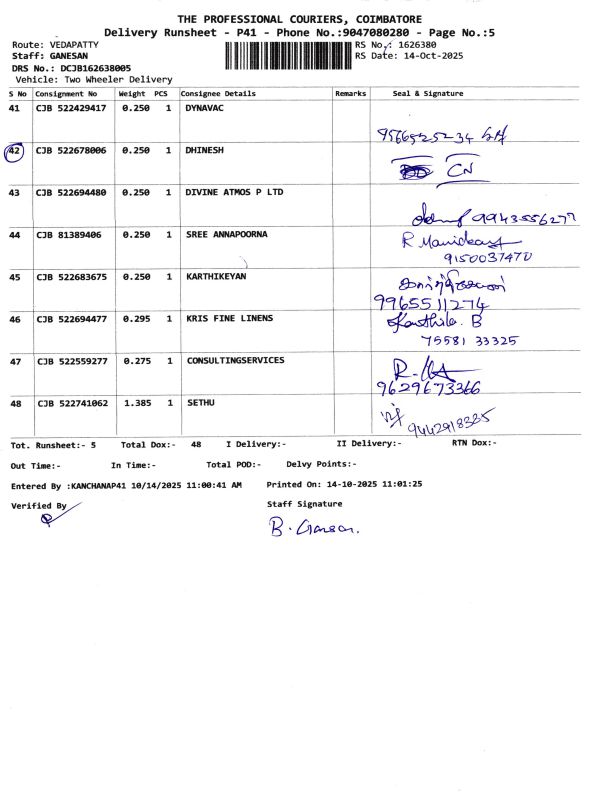 THE PROFESSIONAL COURIERS, COIMBATORE
Delivery Runsheet - P41 - Phone No.:9047080280 - Page No.:5
Route: VEDAPATTY RS No.: 1626380
Staff: GANESAN RS Date: 14-Oct-2025
DRS No.: DCJB162638005
Vehicle: Two Wheeler Delivery
S No Consignment No Weight PCS Consignee Details Remarks Seal & Signature
41 CJB 522429417 0.250 1 DYNAVAC
9566525234
42 CJB 522678006 0.250 1 DHINESH
CN
43 CJB 522694480 0.250 1 DIVINE ATMOS P LTD
9943556277
44 CJB 81389406 0.250 1 SREE ANNAPOORNA
R
9150037470
45 CJB 522683675 0.250 1 KARTHIKEYAN
9965511274
46 CJB 522694477 0.295 1 KRIS FINE LINENS
B
75581 33325
47 CJB 522559277 0.275 1 CONSULTINGSERVICES
9629673366
48 CJB 522741062 1.385 1 SETHU
9442918385
Tot. Runsheet:- 5 Total Dox:- 48 I Delivery:- II Delivery:- RTN Dox:-
Out Time:- In Time:- Total POD:- Delvy Points:-
Entered By :KANCHANAP41 10/14/2025 11:00:41 AM Printed On: 14-10-2025 11:01:25
Verified By Staff Signature
B.